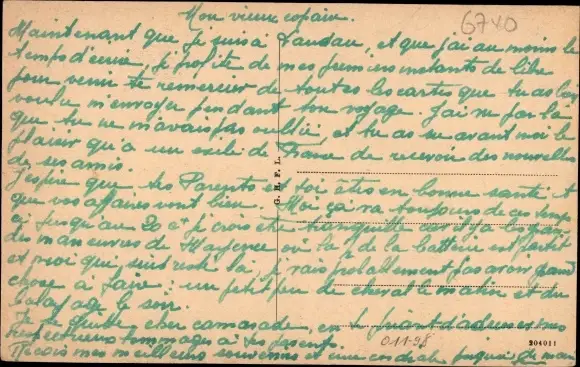 Mon vieux copain.
6740
Maintenant que je suis à Landau, et que j'ai au moins le
temps d'écrire, je profite de mes premiers instants de libre
pour venir te remercier de toutes les cartes que tu as bien
voulu m'envoyer pendant ton voyage. J'ai vu par là
que tu ne m'avais pas oublié, et tu as su avant moi le
plaisir qu'a un exilé de France de recevoir des nouvelles
de ses amis.
J'espère que tes Parents et toi êtes en bonne santé et
que vos affaires vont bien. Moi ça va toujours de ces temps
ci jusqu'au 20 ct je crois être tranquille
des manœuvres de Mayence où la de la batterie est partie
et moi qui suis resté là, je vais probablement pas avoir grand
chose à faire : un petit peu de cheval le matin et du
balayage le soir.
Je te quitte, cher camarade, en te priant d'adresser mes
respectueux hommages à tes parents.
Reçois mes meilleurs souvenirs et une cordiale poignée de main
G. M. F. L.
011-98
204011